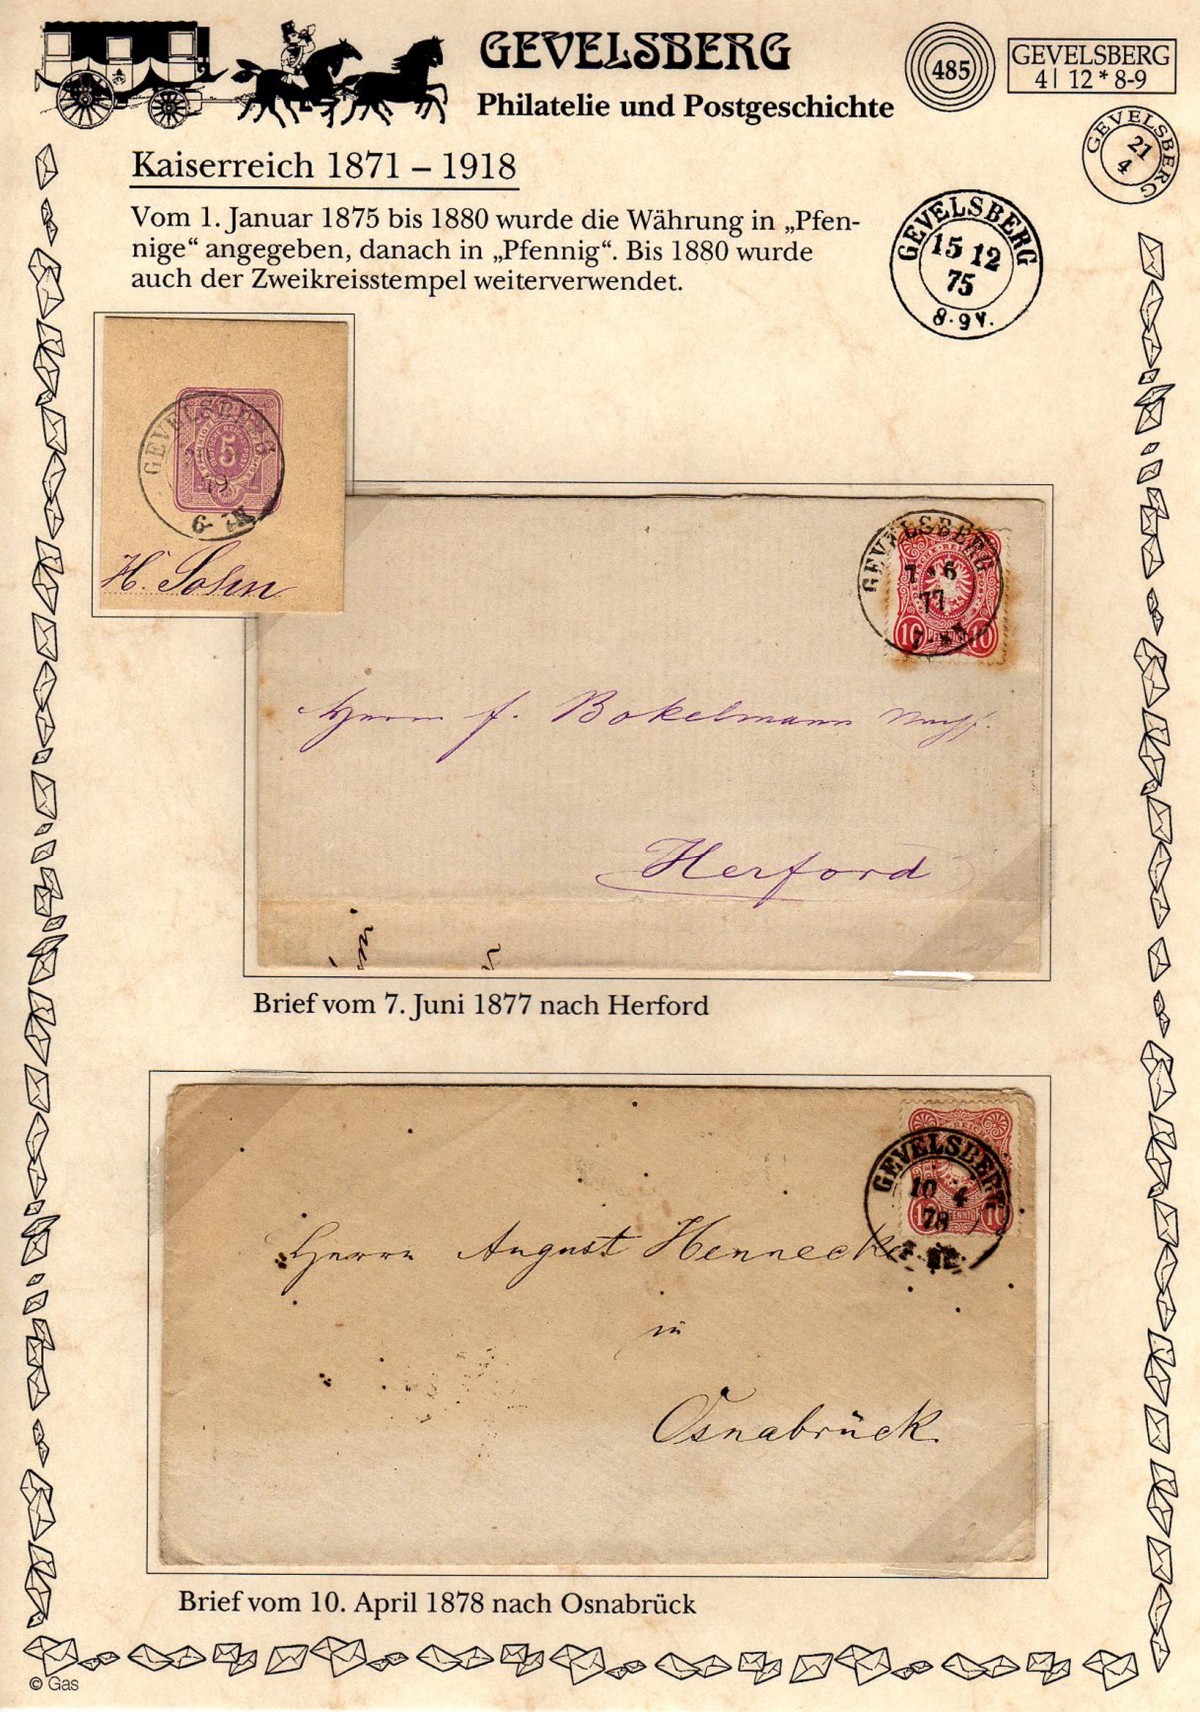 GEVELSBERG
Philatelie und Postgeschichte
485
GEVELSBERG
4| 12 * 8-9
GEVELSBERG
21
4
Kaiserreich 1871 – 1918
Vom 1. Januar 1875 bis 1880 wurde die Währung in „Pfen-
nige“ angegeben, danach in „Pfennig“. Bis 1880 wurde
auch der Zweikreisstempel weiterverwendet.
GEVELSBERG
15 12
75
8-9V.
GEVELSBERG
5
79
GEVELSBERG
7 6
77
10 PFENNIG 10
Herrn f. Bokelmann
Herford
Brief vom 7. Juni 1877 nach Herford
GEVELSBERG
10 4
78
PFENNIG
Herrn August Hennecke
in
Osnabrück.
Brief vom 10. April 1878 nach Osnabrück
© Gas